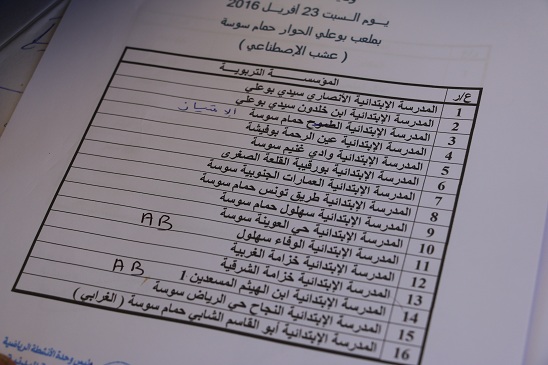 يوم السبت 23 أفريل 2016
بملعب بوعلي الحوار حمام سوسة
( عشب الإصطناعي )
ع/ر المؤسسة التربوية
1 المدرسة الإبتدائية الأنصاري سيدي بوعلي
2 المدرسة الإبتدائية ابن خلدون سيدي بوعلي
3 المدرسة الإبتدائية الطموح حمام سوسة
4 المدرسة الإبتدائية عين الرحمة بوفيشة
5 المدرسة الإبتدائية وادي غنيم سوسة
6 المدرسة الإبتدائية بورقيبة القلعة الصغرى
7 المدرسة الإبتدائية العمارات الجنوبية سوسة
8 المدرسة الإبتدائية طريق تونس حمام سوسة
9 المدرسة الإبتدائية سهلول حمام سوسة
10 المدرسة الإبتدائية حي العوينة سوسة AB
11 المدرسة الإبتدائية الوفاء سهلول
12 المدرسة الإبتدائية خزامة الغربية
13 المدرسة الإبتدائية خزامة الشرقية AB
14 المدرسة الإبتدائية ابن الهيثم المسعدين 1
15 المدرسة الإبتدائية النجاح حي الرياض سوسة
16 المدرسة الإبتدائية أبو القاسم الشابي حمام سوسة ( الغرابي )
وحدة الأنشطة الرياضية